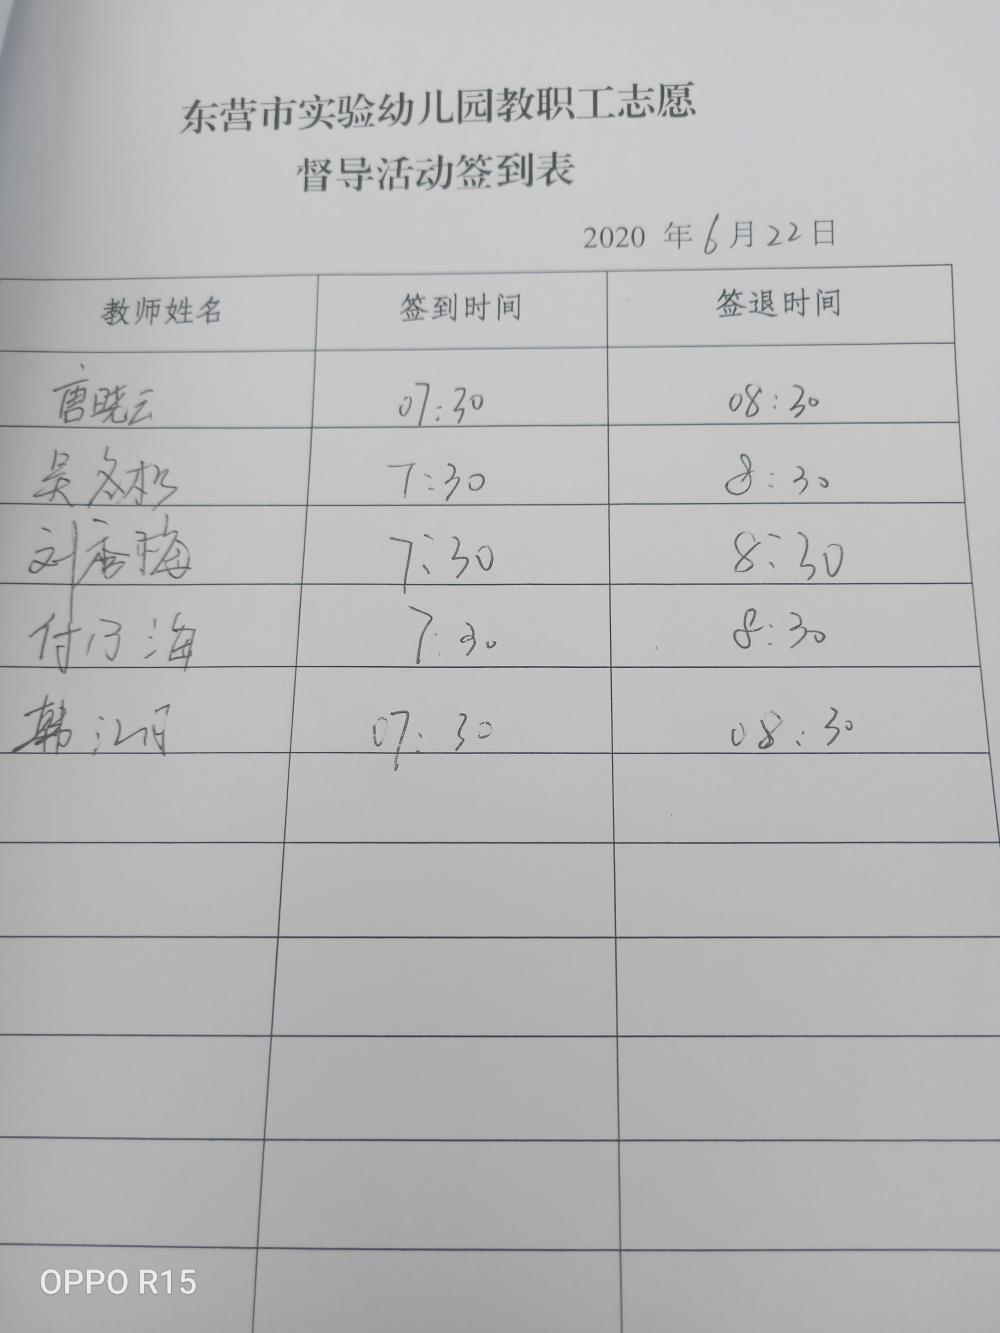 东营市实验幼儿园教职工志愿
督导活动签到表
2020 年 6 月 22 日
教师姓名 签到时间 签退时间
唐晓云 07:30 08:30
吴冬松 7:30 8:30
刘秀梅 7:30 8:30
付乃海 7:30 8:30
韩江月 07:30 08:30
OPPO R15